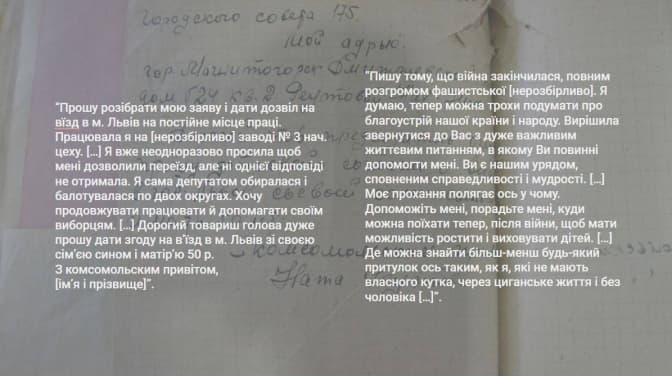 Городского совета 175.
Мой адрес:
гор. Магнитогорск
"Прошу розібрати мою заяву і дати дозвіл на
вїзд в м. Львів на постійне місце праці.
Працювала я на [нерозбірливо] заводі № 3 нач.
цеху. […] Я вже неодноразово просила щоб
мені дозволили переїзд, але ні однієї відповіді
не отримала. Я сама депутатом обиралася і
балотувалася по двох округах. Хочу
продовжувати працювати й допомагати своїм
виборцям. […] Дорогий товариш голова дуже
прошу дати згоду на в'їзд в м. Львів зі своєю
сім'єю сином і матір'ю 50 р.
З комсомольским привітом,
[ім'я і прізвище]".
"Пишу тому, що війна закінчилася, повним
розгромом фашистської [нерозбірливо]. Я
думаю, тепер можна трохи подумати про
благоустрій нашої країни і народу. Вирішила
звернутися до Вас з дуже важливим
життєвим питанням, в якому Ви повинні
допомогти мені. Ви є нашим урядом,
сповненим справедливості і мудрості. […]
Моє прохання полягає ось у чому.
Допоможіть мені, порадьте мені, куди
можна поїхати тепер, після війни, щоб мати
можливість ростити і виховувати дітей. […]
Де можна знайти більш-менш будь-який
притулок ось таким, як я, які не мають
власного кутка, через циганське життя і без
чоловіка […]".